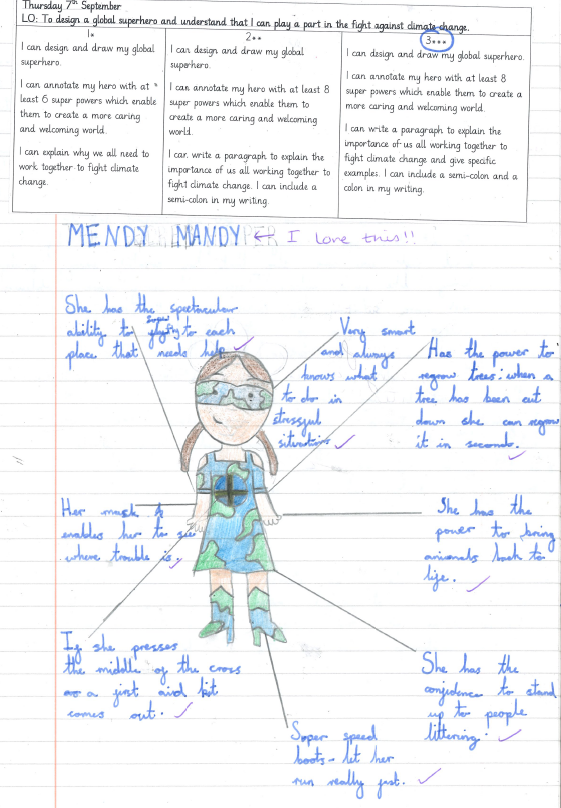 Thursday 7th September
LO: To design a global superhero and understand that I can play a part in the fight against climate change.
1*
I can design and draw my global
superhero.
I can annotate my hero with at
least 6 super powers which enable
them to create a more caring
and welcoming world.
I can explain why we all need to
work together to fight climate
change.
2**
I can design and draw my global
superhero.
I can annotate my hero with at least 8
super powers which enable them to
create a more caring and welcoming
world.
I can write a paragraph to explain the
importance of us all working together to
fight climate change. I can include a
semi-colon in my writing.
3***
I can design and draw my global superhero.
I can annotate my hero with at least 8
super powers which enable them to create a
more caring and welcoming world.
I can write a paragraph to explain the
importance of us all working together to
fight climate change and give specific
examples. I can include a semi-colon and a
colon in my writing.
MENDY MANDY ← I love this!!
She has the spectacular
ability to to each
place that needs help
Very smart
and always
knows what
to do in
stressful
situations
Has the power to
regrow trees; when a
tree has been cut
down she can regrow
it in seconds.
Her mask
enables her to see
where trouble is.
She has the
power to bring
animals back to
life.
If she presses
the middle of the cross
a first aid kit
comes out.
She has the
confidence to stand
up to people
littering.
Super speed
boots - let her
run really fast.